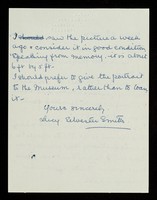 I saw the picture a week
ago & consider it in good condition,
Speaking from memory, it is about
6 ft by 5 ft.
I should prefer to give the portrait
to the Museum, rather than to loan
it -
Yours sincerely,
Lucy Silvester Smith